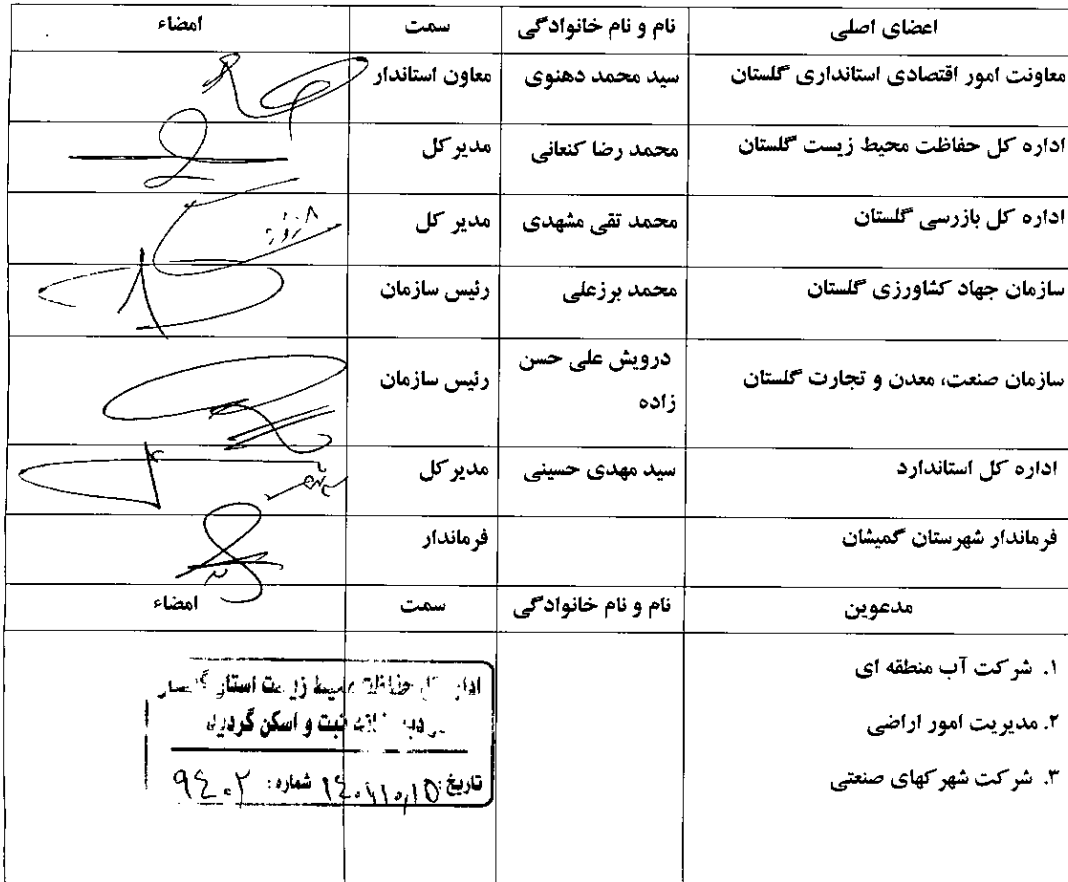 اعضای اصلی نام و نام خانوادگی سمت امضاء
معاونت امور اقتصادی استانداری گلستان سید محمد دهنوی معاون استاندار
اداره کل حفاظت محیط زیست گلستان محمد رضا کنعانی مدیر کل
اداره کل بازرسی گلستان محمد تقی مشهدی مدیر کل
سازمان جهاد کشاورزی گلستان محمد برزعلی رئیس سازمان
سازمان صنعت، معدن و تجارت گلستان درویش علی حسن زاده رئیس سازمان
اداره کل استاندارد سید مهدی حسینی مدیر کل
فرماندار شهرستان گمیشان فرماندار
مدعوین نام و نام خانوادگی سمت امضاء
۱. شرکت آب منطقه ای
۲. مدیریت امور اراضی
۳. شرکت شهرکهای صنعتی
حفاظت محیط زیست استان
ثبت و اسکن گردید
تاریخ: شماره: ۹۴۰۲